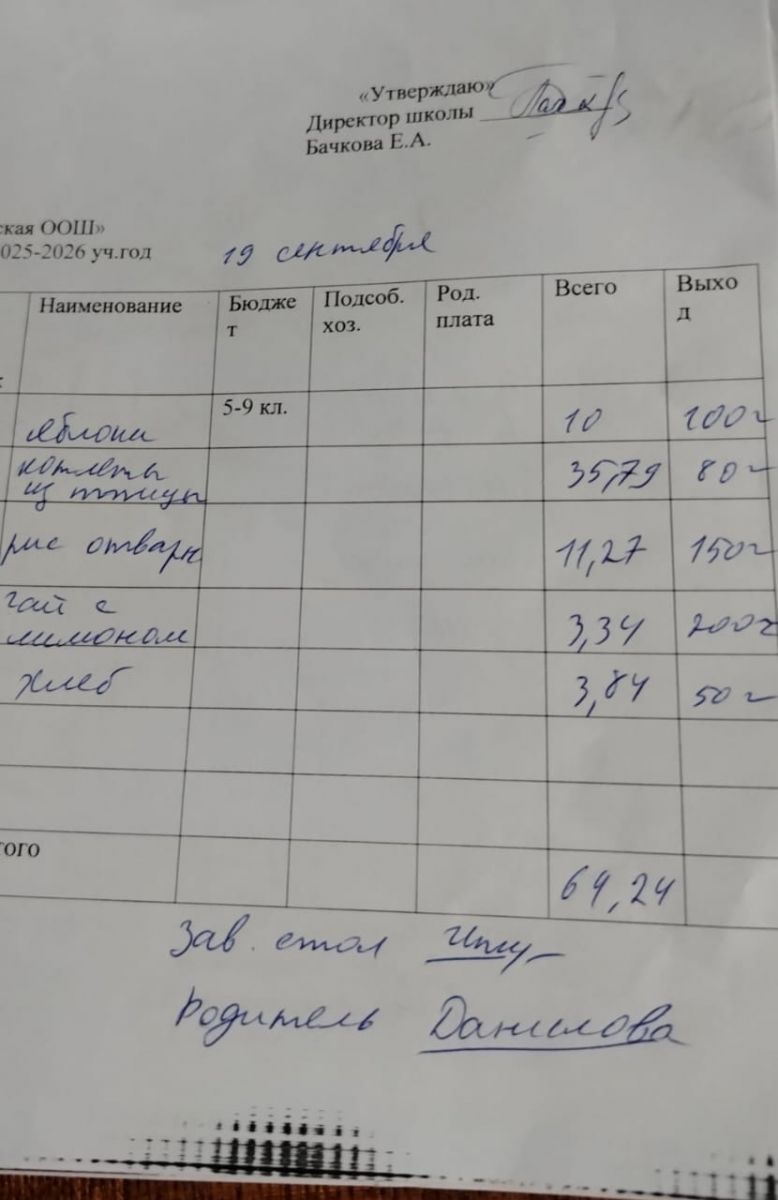 «Утверждаю»
Директор школы
Бачкова Е.А.
ская ООШ»
025-2026 уч.год 19 сентября
Наименование Бюдже Подсоб. Род. Всего Выхо
т хоз. плата д
яблоки 5-9 кл. 10 100г
котлеты
из птицы 35,79 80г
рис отварн 11,27 150г
чай с
лимоном 3,34 200г
хлеб 3,84 50г
того 64,24
Зав. стол
Родитель Данилова